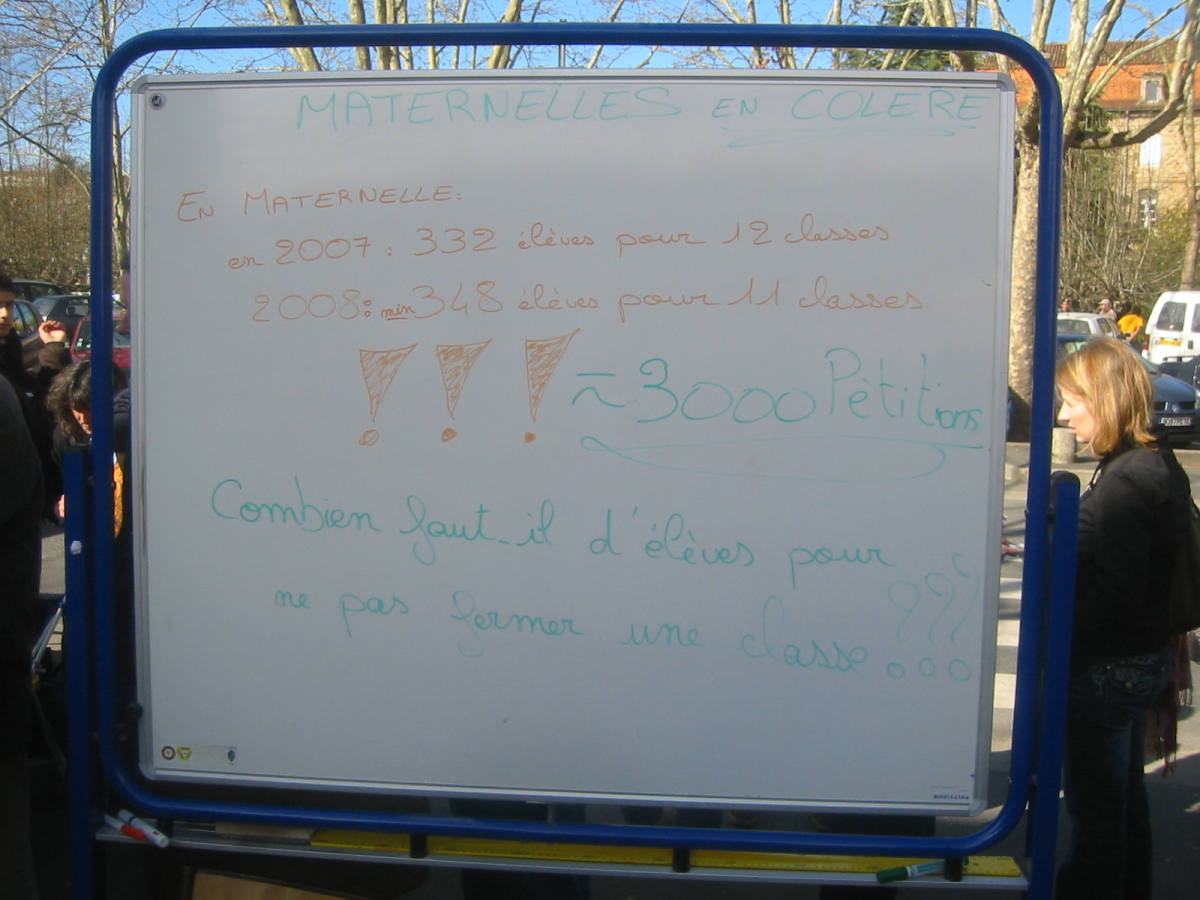 MATERNELLES EN COLERE
EN MATERNELLE:
en 2007 : 332 élèves pour 12 classes
2008 : min 348 élèves pour 11 classes
! ! !
~ 3000 Pétitions
Combien faut-il d'élèves pour
ne pas fermer une classe ???